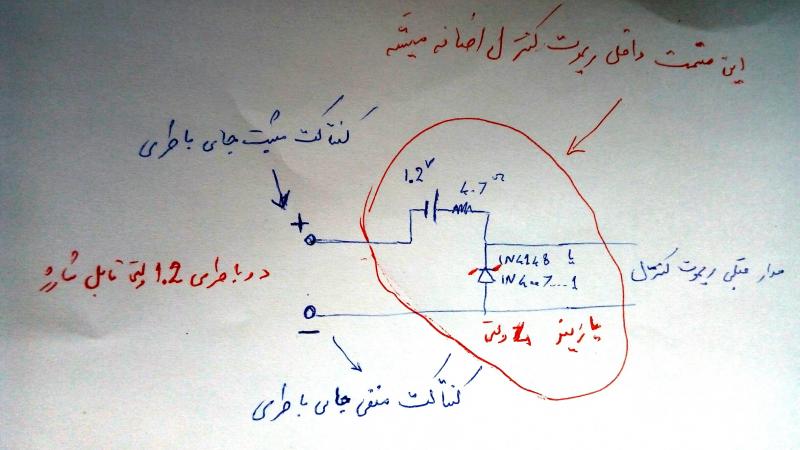 این قسمت داخل ریموت کنترل اضافه میشه
کنتاکت مثبت جای باطری
1.2V
4.7Ω
+
1N4148 یا
1N4007....1
دو باطری 1.2 ولتی قابل شارژ
مدار قبلی ریموت کنترل
یا زینر ولتی
−
کنتاکت منفی جای باطری